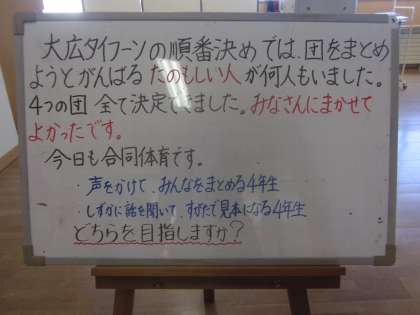 大広タイフーンの順番決めでは、団をまとめ
ようとがんばる たのもしい人 が何人もいました。
4つの団 全て決定できました。みなさんにまかせて
よかったです。
今日も合同体育です。
・声をかけて、みんなをまとめる4年生
・しずかに話を聞いて、すがたで見本になる4年生
どちらを目指しますか?